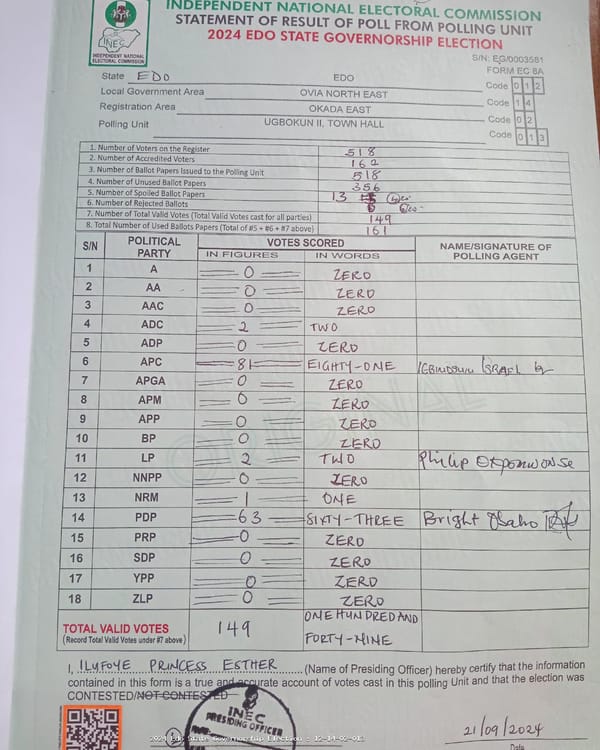 INDEPENDENT NATIONAL ELECTORAL COMMISSION
STATEMENT OF RESULT OF POLL FROM POLLING UNIT
2024 EDO STATE GOVERNORSHIP ELECTION
INEC
INDEPENDENT NATIONAL
ELECTORAL COMMISSION
S/N: EG/0003581
FORM EC 8A
State EDO EDO Code 0 1 2
Local Government Area OVIA NORTH EAST Code 1 4
Registration Area OKADA EAST Code 0 2
Polling Unit UGBOKUN II, TOWN HALL Code 0 1 3
1. Number of Voters on the Register 518
2. Number of Accredited Voters 162
3. Number of Ballot Papers Issued to the Polling Unit 518
4. Number of Unused Ballot Papers 356
5. Number of Spoiled Ballot Papers 13
6. Number of Rejected Ballots
7. Number of Total Valid Votes (Total Valid Votes cast for all parties) 149
8. Total Number of Used Ballots Papers (Total of #5 + #6 + #7 above) 161
S/N POLITICAL PARTY VOTES SCORED NAME/SIGNATURE OF POLLING AGENT
IN FIGURES IN WORDS
1 A 0 ZERO
2 AA 0 ZERO
3 AAC 0 ZERO
4 ADC 2 TWO
5 ADP 0 ZERO
6 APC 81 EIGHTY-ONE ISRAEL
7 APGA 0 ZERO
8 APM 0 ZERO
9 APP 0 ZERO
10 BP 0 ZERO
11 LP 2 TWO Philip
12 NNPP 0 ZERO
13 NRM 1 ONE
14 PDP 63 SIXTY-THREE Bright Osaho
15 PRP 0 ZERO
16 SDP 0 ZERO
17 YPP 0 ZERO
18 ZLP 0 ZERO
TOTAL VALID VOTES 149 ONE HUNDRED AND
(Record Total Valid Votes under #7 above) FORTY-NINE
I, ILUFOYE PRINCESS ESTHER (Name of Presiding Officer) hereby certify that the information
contained in this form is a true and accurate account of votes cast in this polling Unit and that the election was
CONTESTED/NOT CONTESTED
INEC
PRESIDING OFFICER
21/09/2024
Date
ORIGINAL